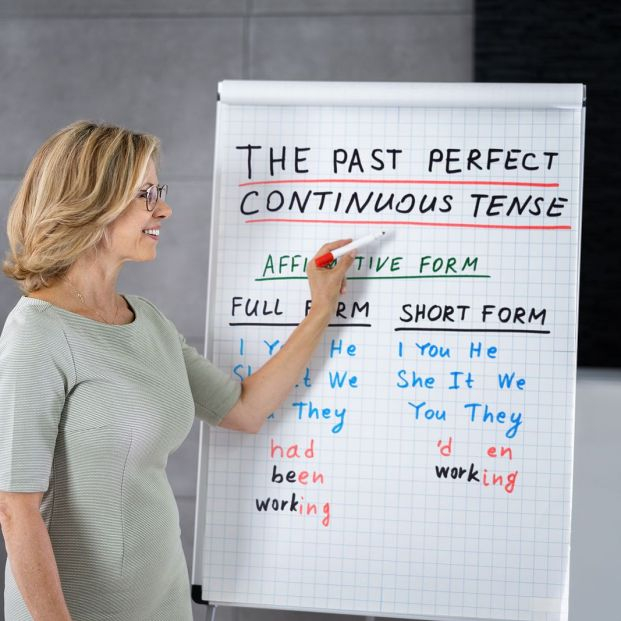 THE PAST PERFECT
CONTINUOUS TENSE
FORM
FULL FORM
I He
We
They
had
been
working
SHORT FORM
I You He
She It We
You They
'd en
working